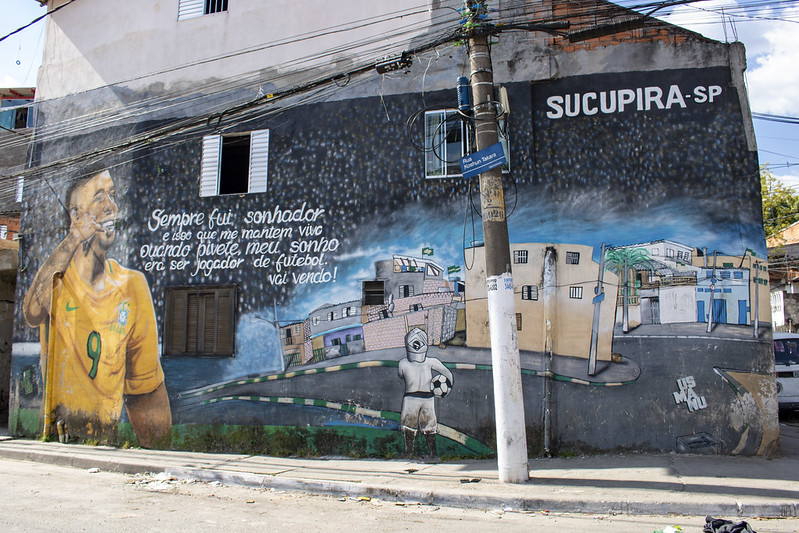 SUCUPIRA-SP
Rua
Koshun Takara
Sempre fui sonhador
e isso que me mantem vivo
Quando pivete, meu sonho
era ser jogador de futebol.
vai vendo!
9
US
MANU